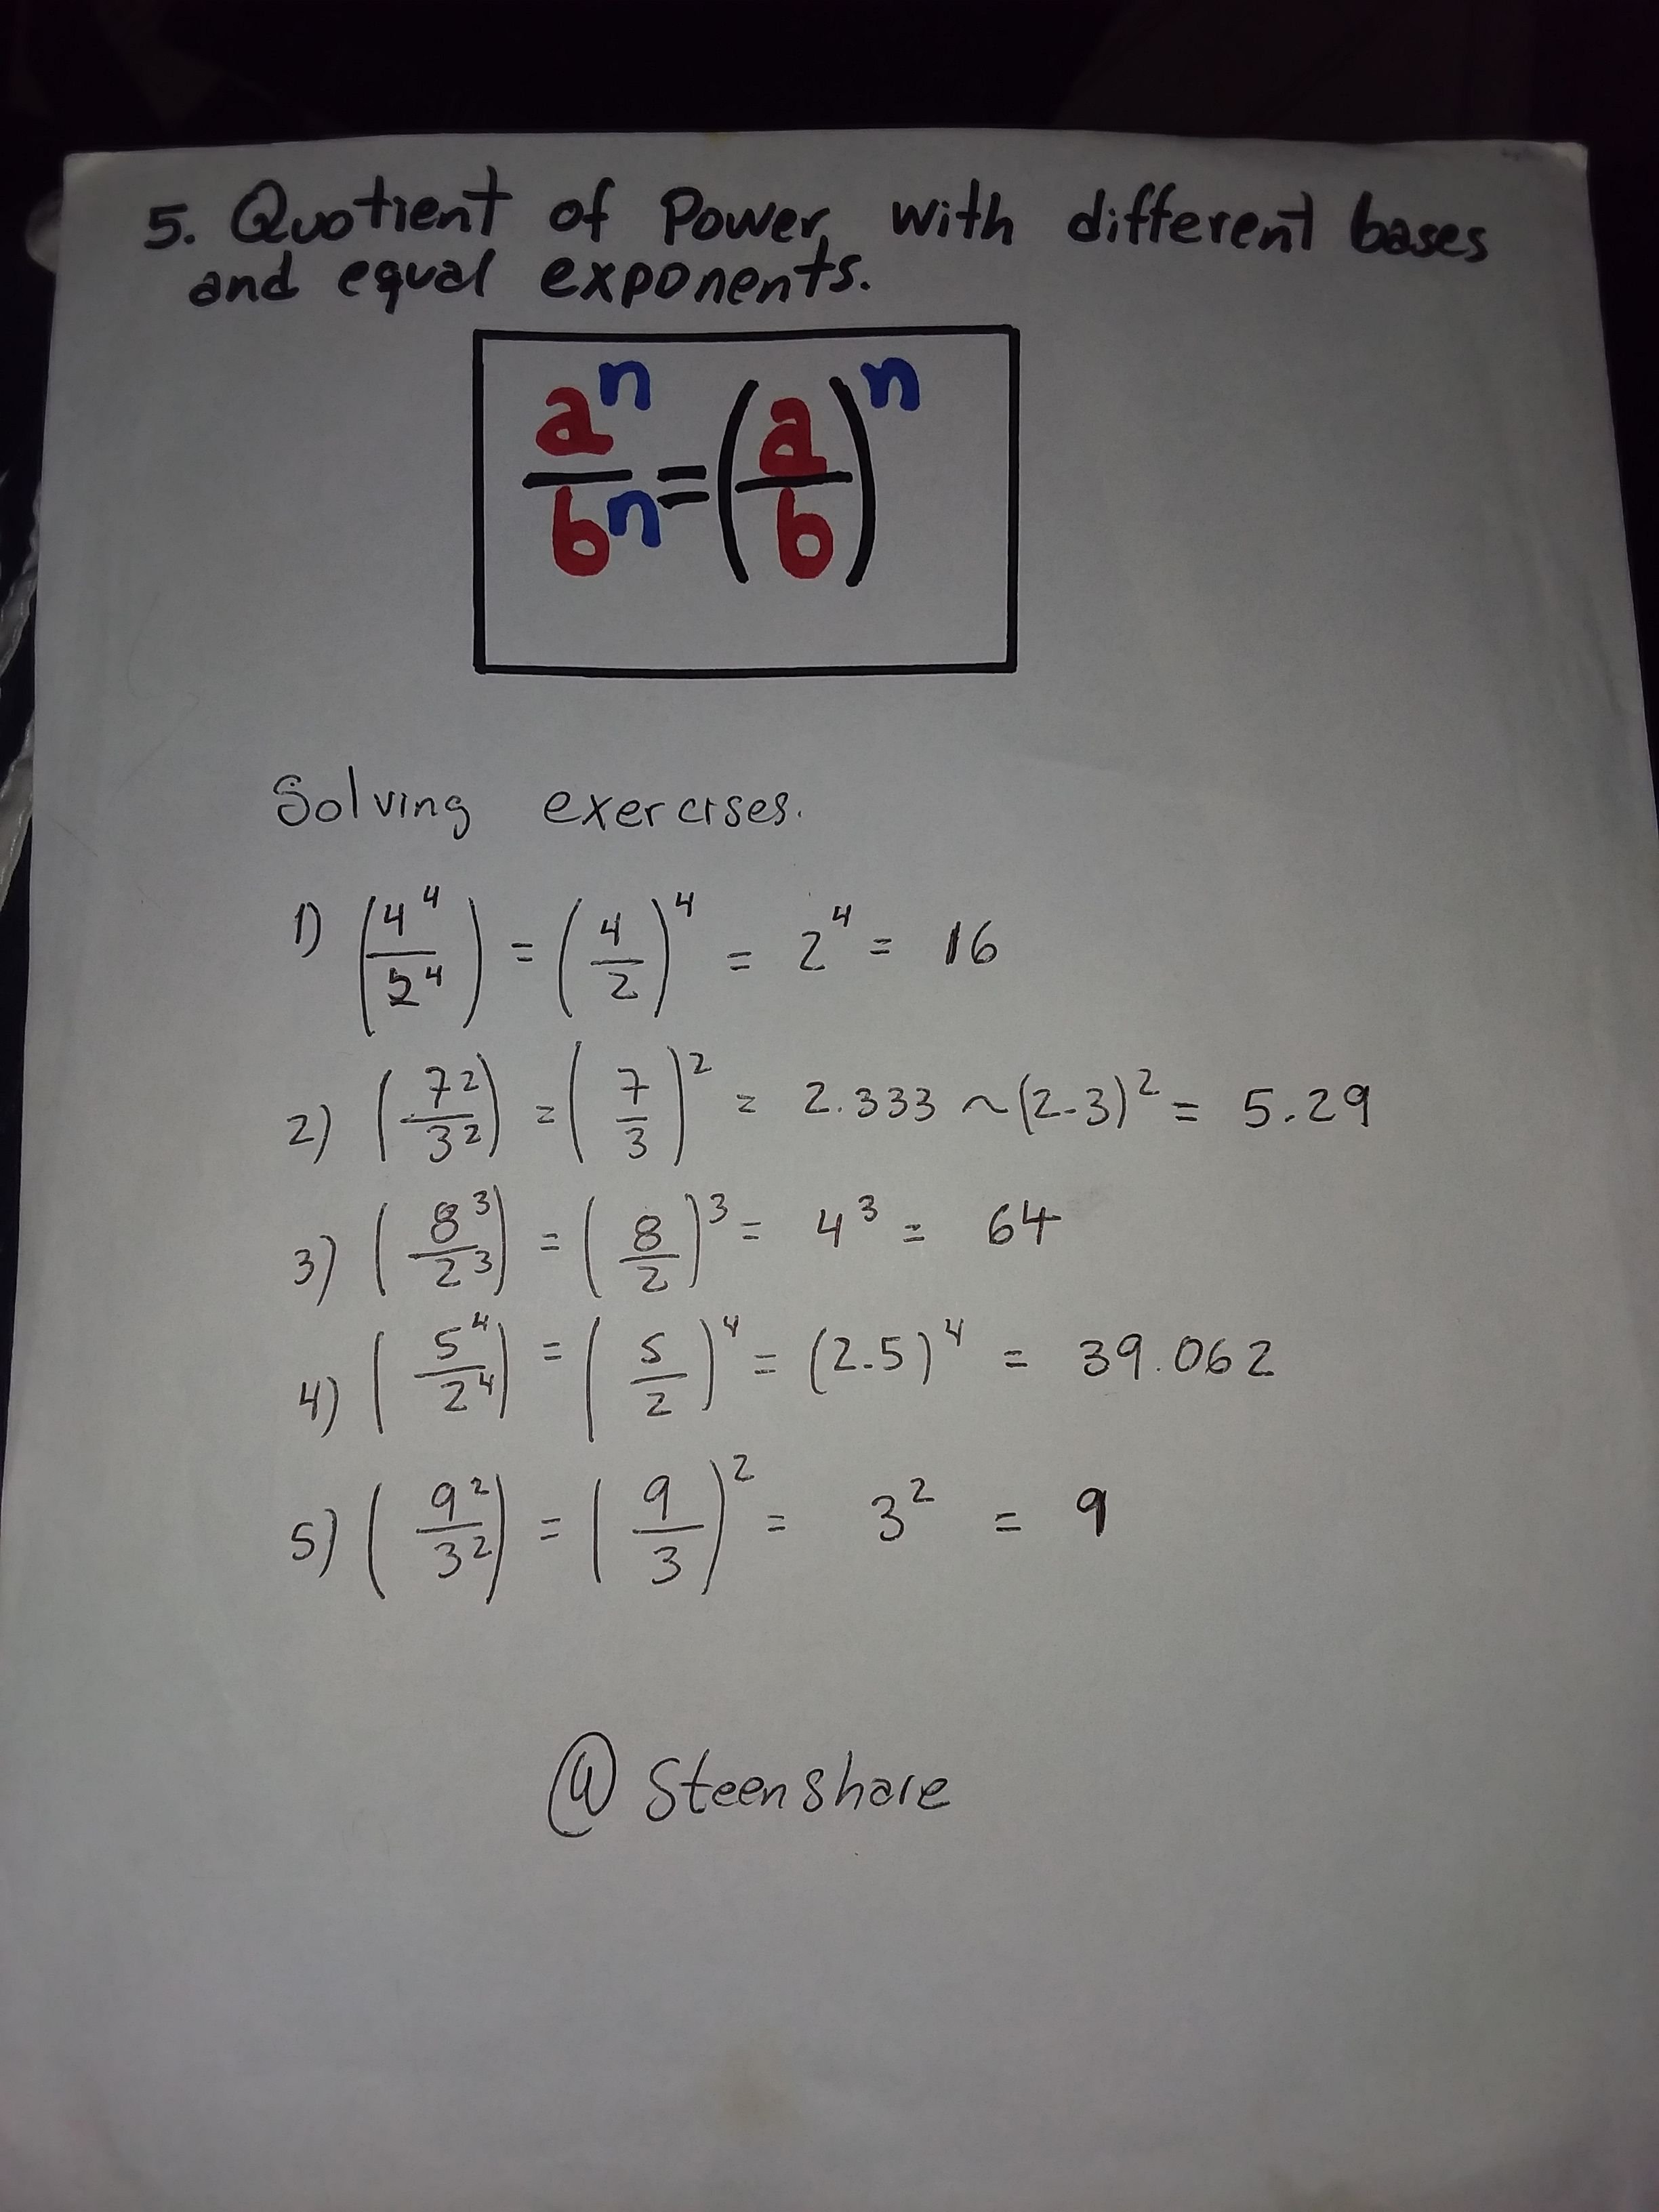 5. Quotient of Power, with different bases
and equal exponents.
a^n/b^n = (a/b)^n
Solving exercises.
1) (4^4/2^4) = (4/2)^4 = 2^4 = 16
2) (7^2/3^2) = (7/3)^2 = 2.333 ~ (2.3)^2 = 5.29
3) (8^3/2^3) = (8/2)^3 = 4^3 = 64
4) (5^4/2^4) = (5/2)^4 = (2.5)^4 = 39.062
5) (9^2/3^2) = (9/3)^2 = 3^2 = 9
@steenshare